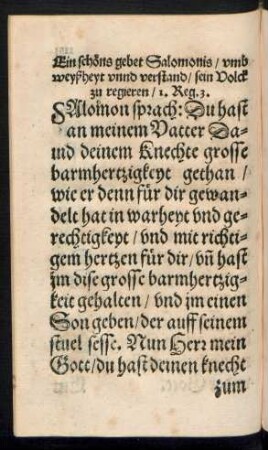 Ein schöns gebet Salomonis / vmb
weyßheyt vnnd verstand / sein Volck
zu regieren / 1. Reg. 3.
SAlomon sprach: Du hast
an meinem Vatter Da-
uid deinem Knechte grosse
barmhertzigkeyt gethan /
wie er denn für dir gewan-
delt hat in warheyt vnd ge-
rechtigkeyt / vnd mit richti-
gem hertzen für dir / vñ hast
jm dise grosse barmhertzig-
keit gehalten / vnd jm einen
Son geben / der auff seinem
stuel sesse. Nun Herr mein
Gott / du hast deinen knecht
zum